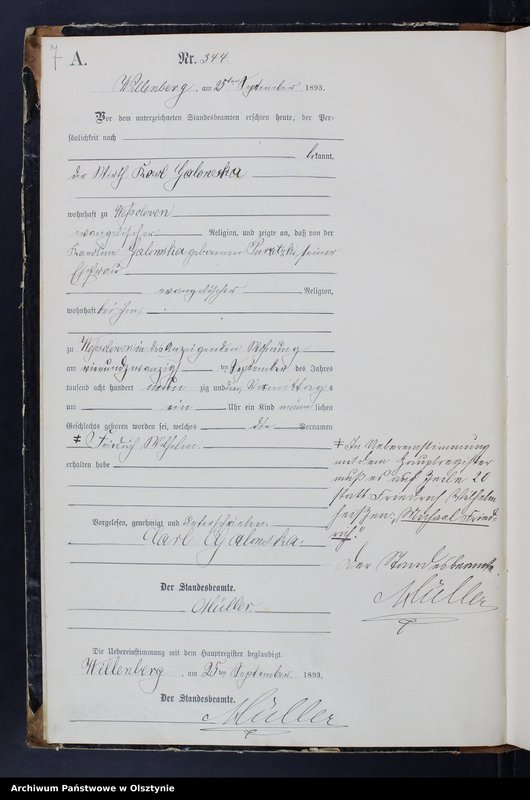 7
A.
Nr. 344
Willenberg, am 25ten September 1893.
Vor dem unterzeichneten Standesbeamten erschien heute, der Per-
sönlichkeit nach
bekannt,
der Wirth Karl Galonska
wohnhaft zu
evangelischer Religion, und zeigte an, daß von der
Karoline Galonska geborenen seiner
Ehefrau
evangelischer Religion,
wohnhaft bei ihm,
zu in des Anzeigenden Wohnung
am vierundzwanzigsten September des Jahres
tausend acht hundert neun zig und drei Vormittags
um ein Uhr ein Kind männlichen
Geschlechts geboren worden sei, welches die Vornamen
Friedrich Wilhelm
erhalten habe
Vorgelesen, genehmigt und unterschrieben.
Carl Galonska.
Der Standesbeamte.
Müller
Die Uebereinstimmung mit dem Hauptregister beglaubigt.
Willenberg, am 25ten September 1893.
Der Standesbeamte.
Müller
In Uebereinstimmung
mit dem Hauptregister
muß es auf Zeile 20
statt Friedrich Wilhelm
heißen: "Michael Fried-
rich."
Der Standesbeamte.
Müller
Archiwum Państwowe w Olsztynie